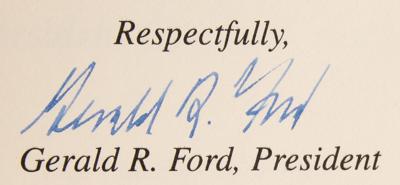 Respectfully,
Gerald R. Ford
Gerald R. Ford, President